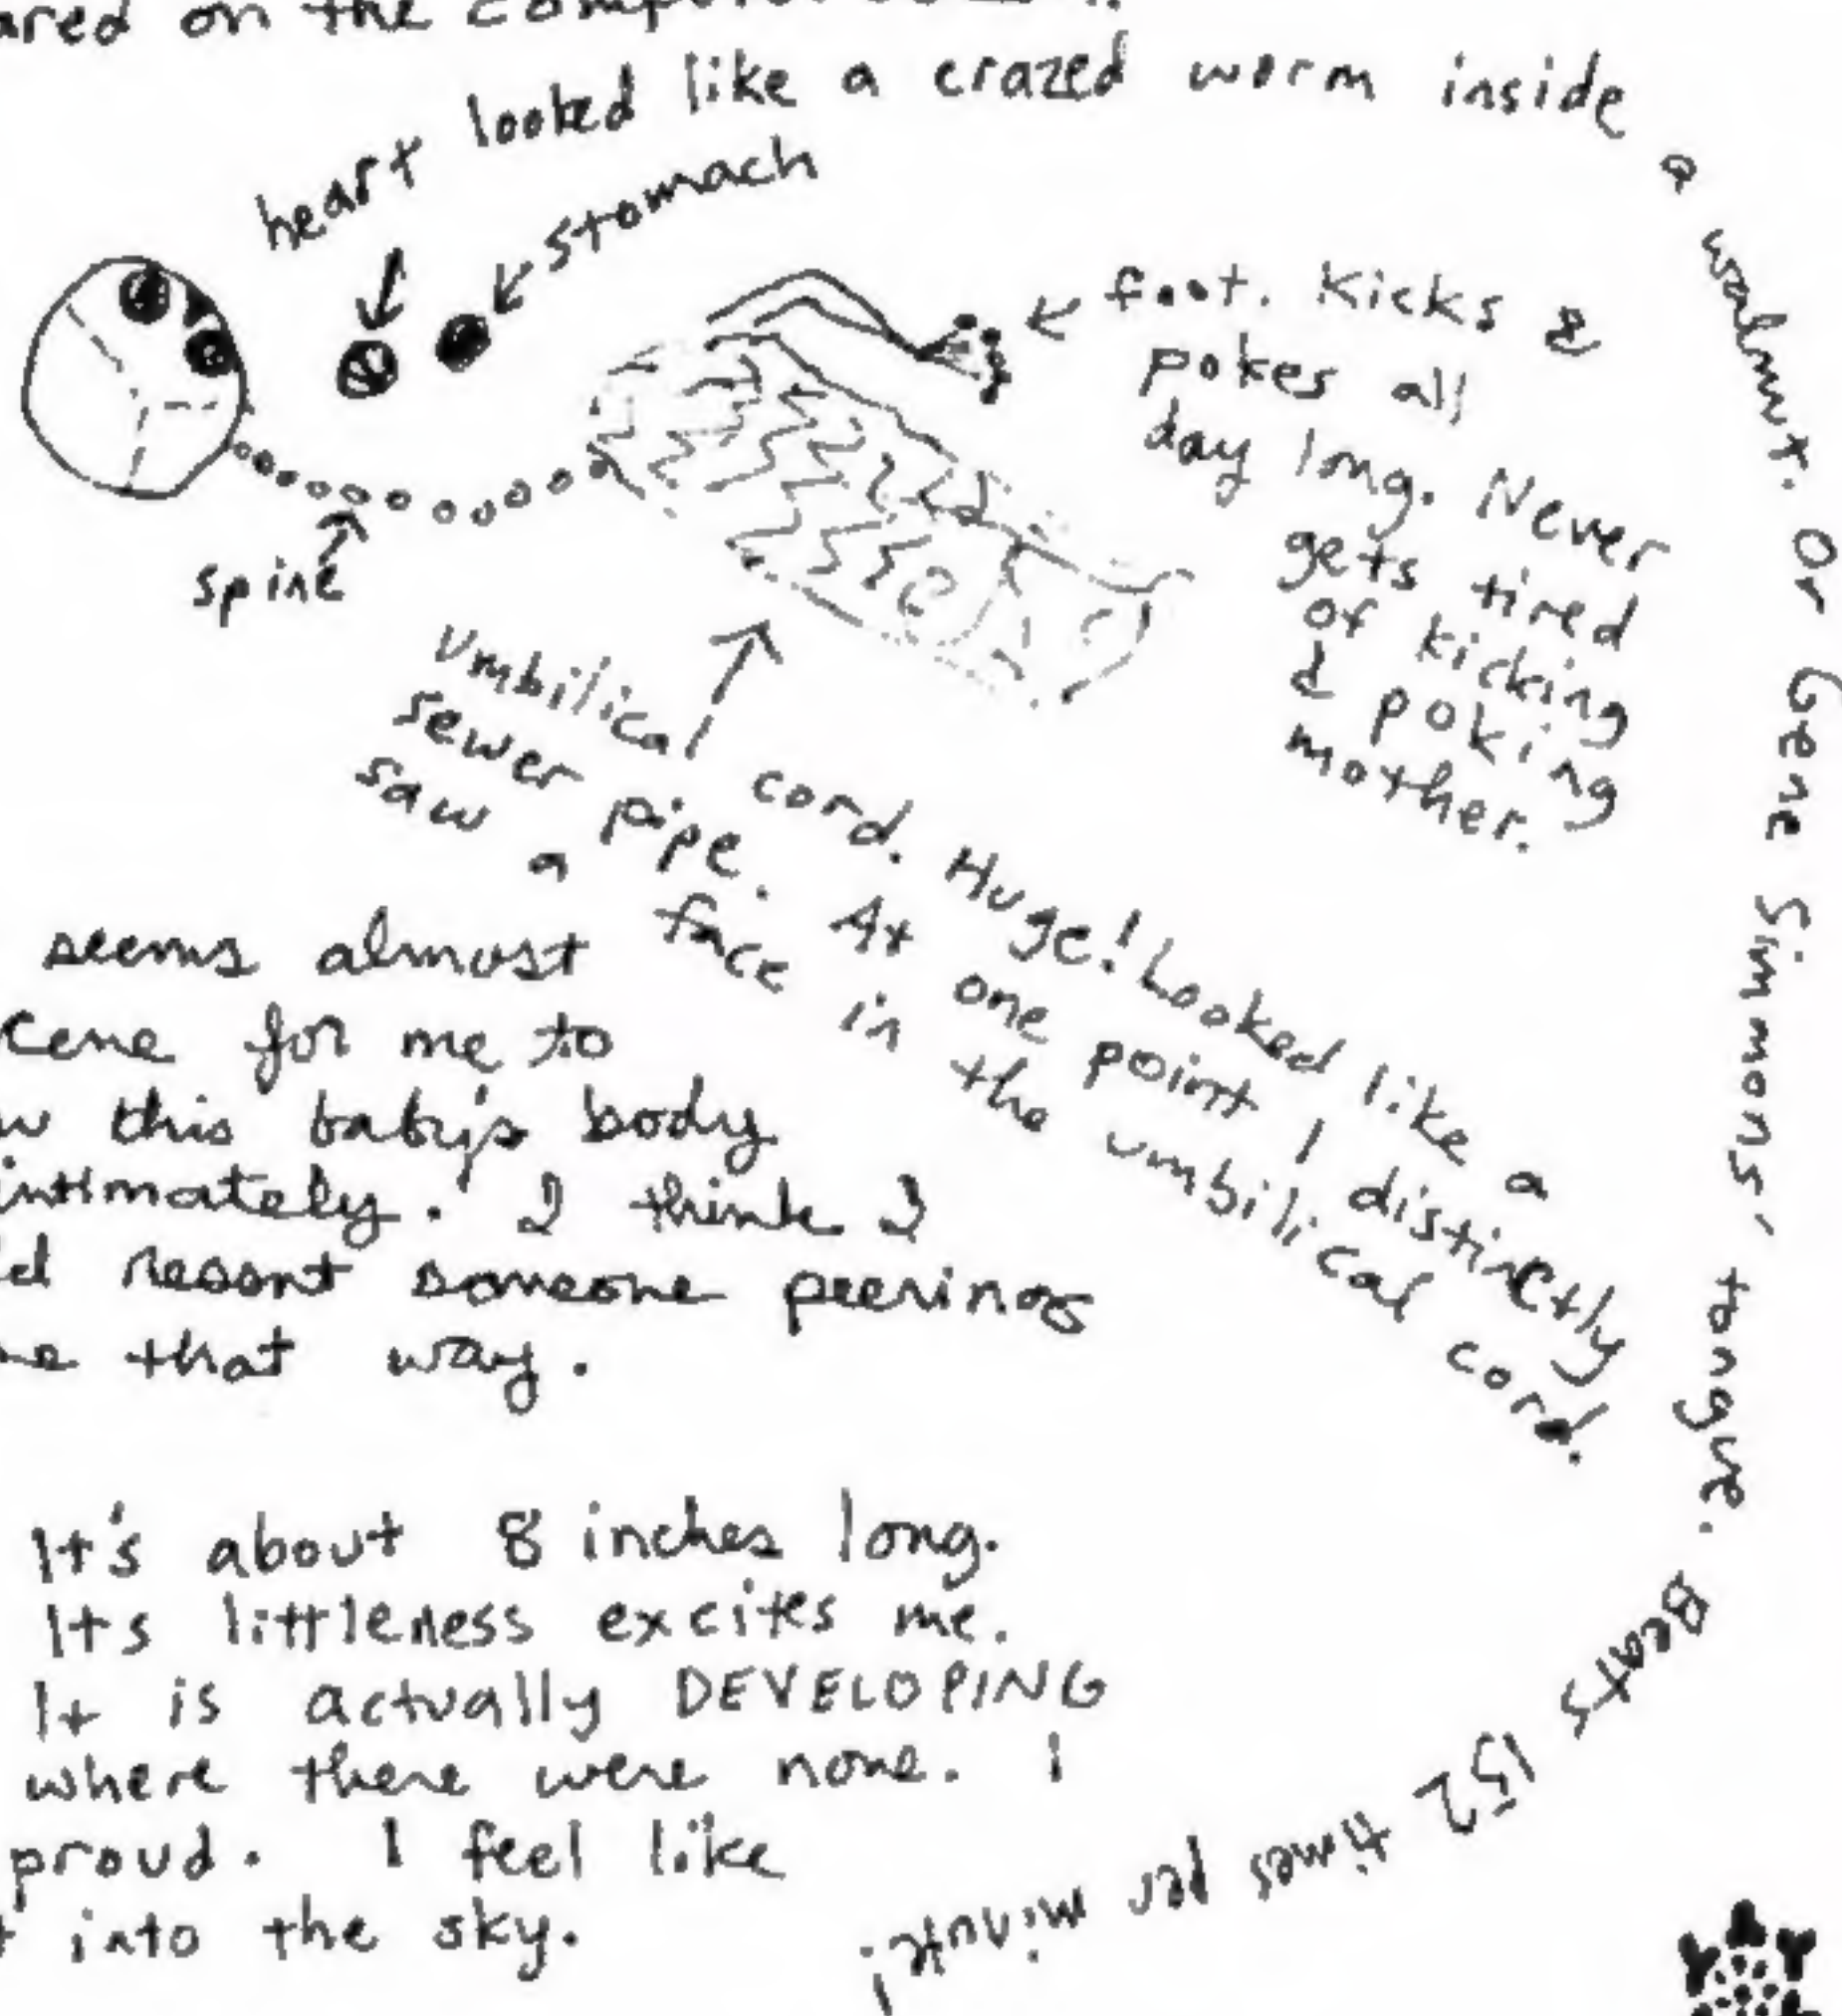 on the
heart looked like a crazed worm inside a walnut. Or Gene Simmons' tongue. Beats 152 times per minute!
stomach
foot. Kicks &
pokes all
day long. Never
gets tired
of kicking
& poking
mother.
spine
Umbilical cord. Huge! Looked like a
sewer pipe. At one point I distinctly
saw a face in the umbilical cord.
seems almost
for me to
this baby's body
intimately. I think I
resent someone peering
that way.
It's about 8 inches long.
Its littleness excites me.
It is actually DEVELOPING
where there were none. I
proud. I feel like
into the sky.